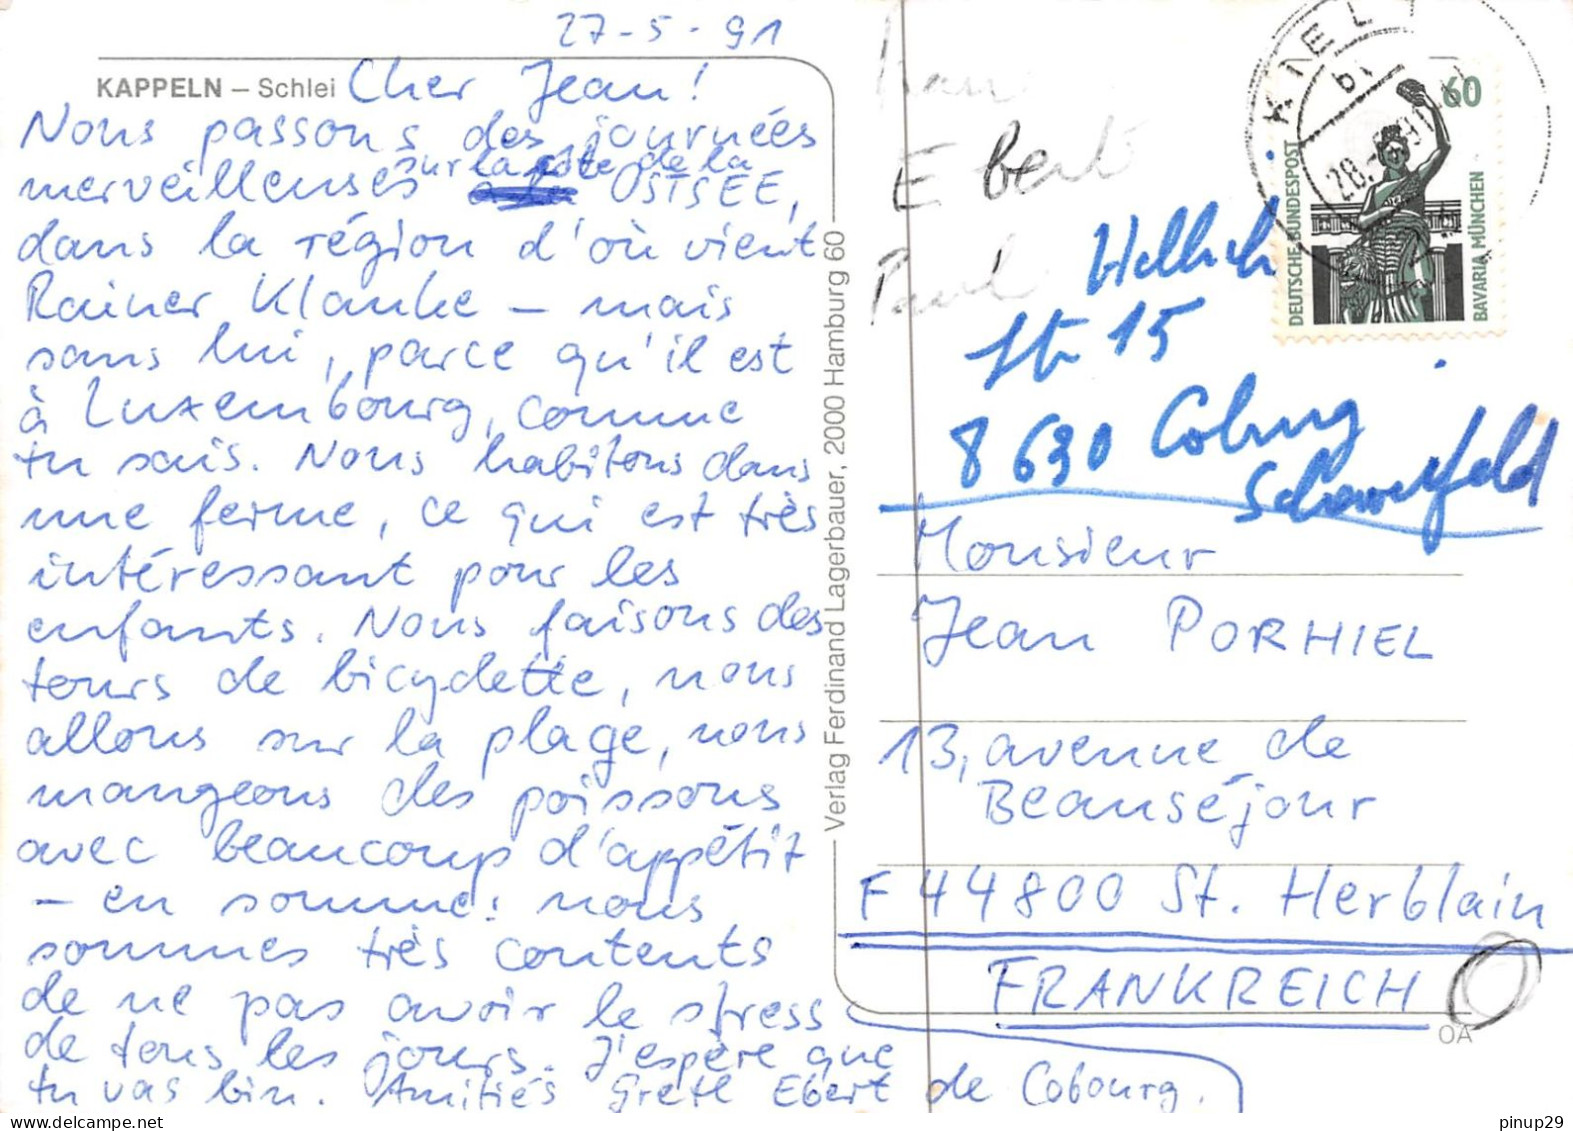 27-5-91
KAPPELN – Schlei Cher Jean!
Nous passons des journées
merveilleuses sur la côte de la OSTSEE,
dans la région d'où vient
Rainer Klauke – mais
sans lui, parce qu'il est
à Luxembourg, comme
tu sais. Nous habitons dans
une ferme, ce qui est très
intéressant pour les
enfants. Nous faisons des
tours de bicyclette, nous
allons sur la plage, nous
mangeons des poissons
avec beaucoup d'appétit
– en somme: nous
sommes très contents
de ne pas avoir le stress
de tous les jours. J'espère que
tu vas bin. Amitiés Gretl Ebert de Cobourg.
Verlag Ferdinand Lagerbauer, 2000 Hamburg 60
Ebert
Paul
Str 15
8630 Coburg
Monsieur
Jean PORHIEL
13, avenue de
Beauséjour
F 44800 St. Herblain
FRANKREICH
OA
KIEL
28.
60
DEUTSCHE BUNDESPOST
BAVARIA MÜNCHEN
pinup29